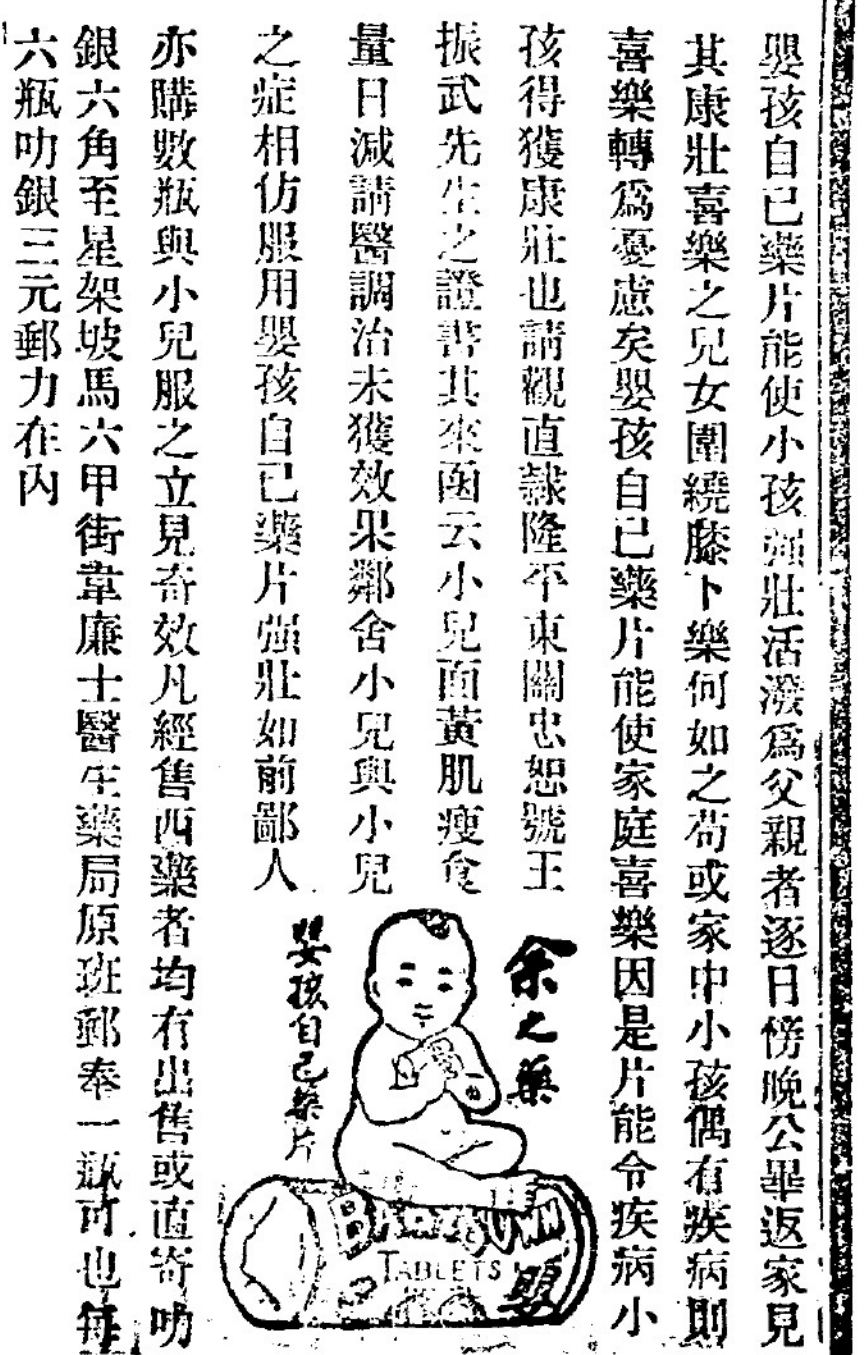 嬰孩自己藥片能使小孩强壯活潑爲父親者逐日傍晚公畢返家見
其康壯喜樂之兒女圍繞膝下樂何如之苟或家中小孩偶有疾病則
喜樂轉爲憂慮矣嬰孩自己藥片能使家庭喜樂因是片能令疾病小
孩得獲康壯也請觀直隸隆平東關忠恕號王
振武先生之證書其來函云小兒面黃肌瘦食
量日減請醫調治未獲效果鄰舍小兒與小兒
之症相仿服用嬰孩自己藥片强壯如前鄙人
亦購數瓶與小兒服之立見奇效凡經售西藥者均有出售或直寄叻
銀六角至星架坡馬六甲街韋廉士醫生藥局原班郵奉一瓶可也每
六瓶叻銀三元郵力在內
余之藥
嬰孩自己藥片
BABY'S OWN
TABLETS
嬰